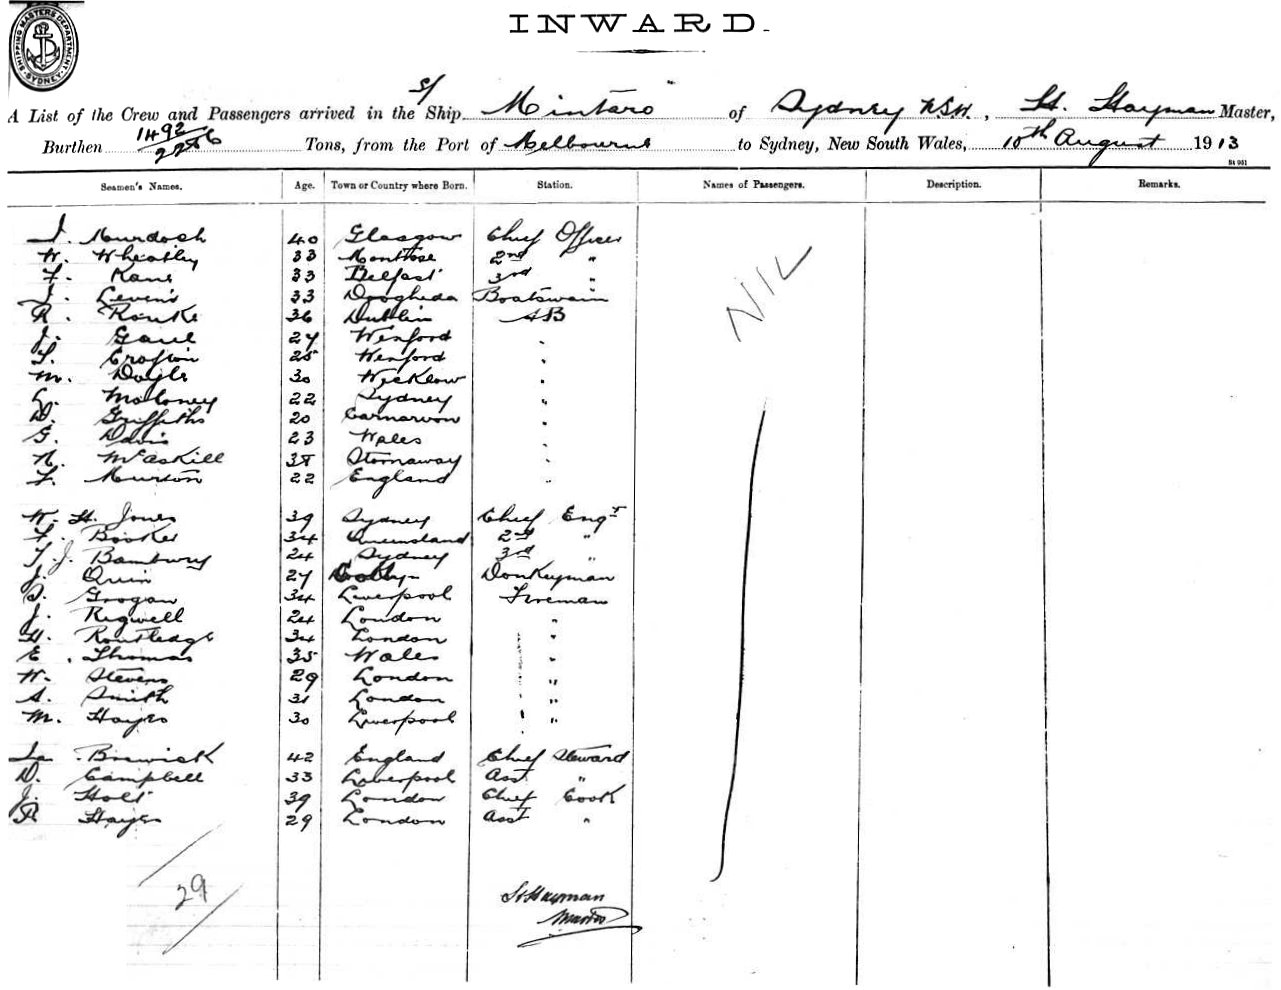 SHIPPING MASTERS DEPARTMENT. SYDNEY
INWARD.
A List of the Crew and Passengers arrived in the s/ Ship "Mintaro" of Sydney N.S.W., H. Hayman Master,
Burthen 1492/2286 Tons, from the Port of Melbourne to Sydney, New South Wales, 10th August 1913
Seamen's Names. Age. Town or Country where Born. Station. Names of Passengers. Description. Remarks.
J. Murdoch 40 Glasgow Chief Officer
W. Wheatley 33 Montrose 2nd "
F. Kane 33 Belfast 3rd "
J. Levens 33 Drogheda Boatswain
R. Rourke 36 Dublin AB
NIL
J. Gaul 27 Wexford "
T. Crofton 25 Wexford "
M. Doyle 30 Wicklow "
Moloney 22 Sydney "
D. Griffiths 20 Carnarvon "
G. Davis 23 Wales "
N. McAskill 38 Stornaway "
F. Murton 22 England "
W. H. Jones 39 Sydney Chief Engr
F. Booker 34 Queensland 2nd "
T. J. Bambury 24 Sydney 3rd "
J. Quin 27 Donkeyman
Grogan 34 Liverpool Fireman
J. Rigwell 24 London "
H. Routledge 34 London "
E. Thomas 35 Wales "
W. Stevens 29 London "
A. Smith 31 London "
M. Hayes 30 Liverpool "
Jas. Brewick 42 England Chief Steward
D. Campbell 33 Liverpool Asst "
J. Holt 39 London Chief Cook
R Hayes 29 London Asst "
29
H Hayman
Master